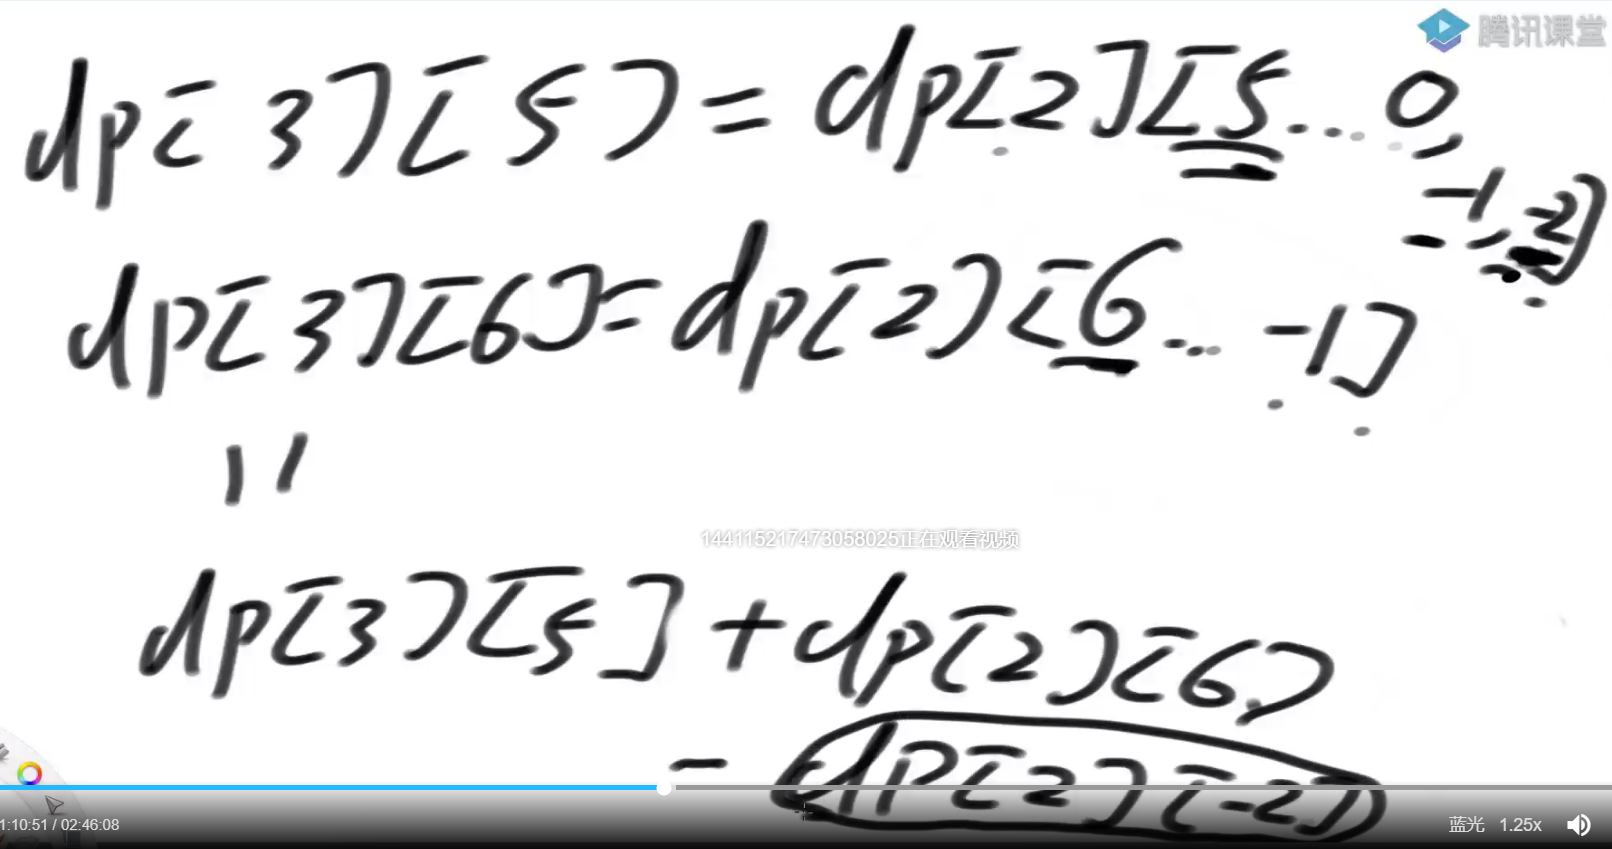 腾讯课堂
dp[3][5]=dp[2][5...0,
-1,-2]
dp[3][6]=dp[2][6...-1]
||
144115217473058025正在观看视频
dp[3][5]+dp[2][6]
-dp[2][-2]
1:10:51 / 02:46:08
蓝光 1.25x